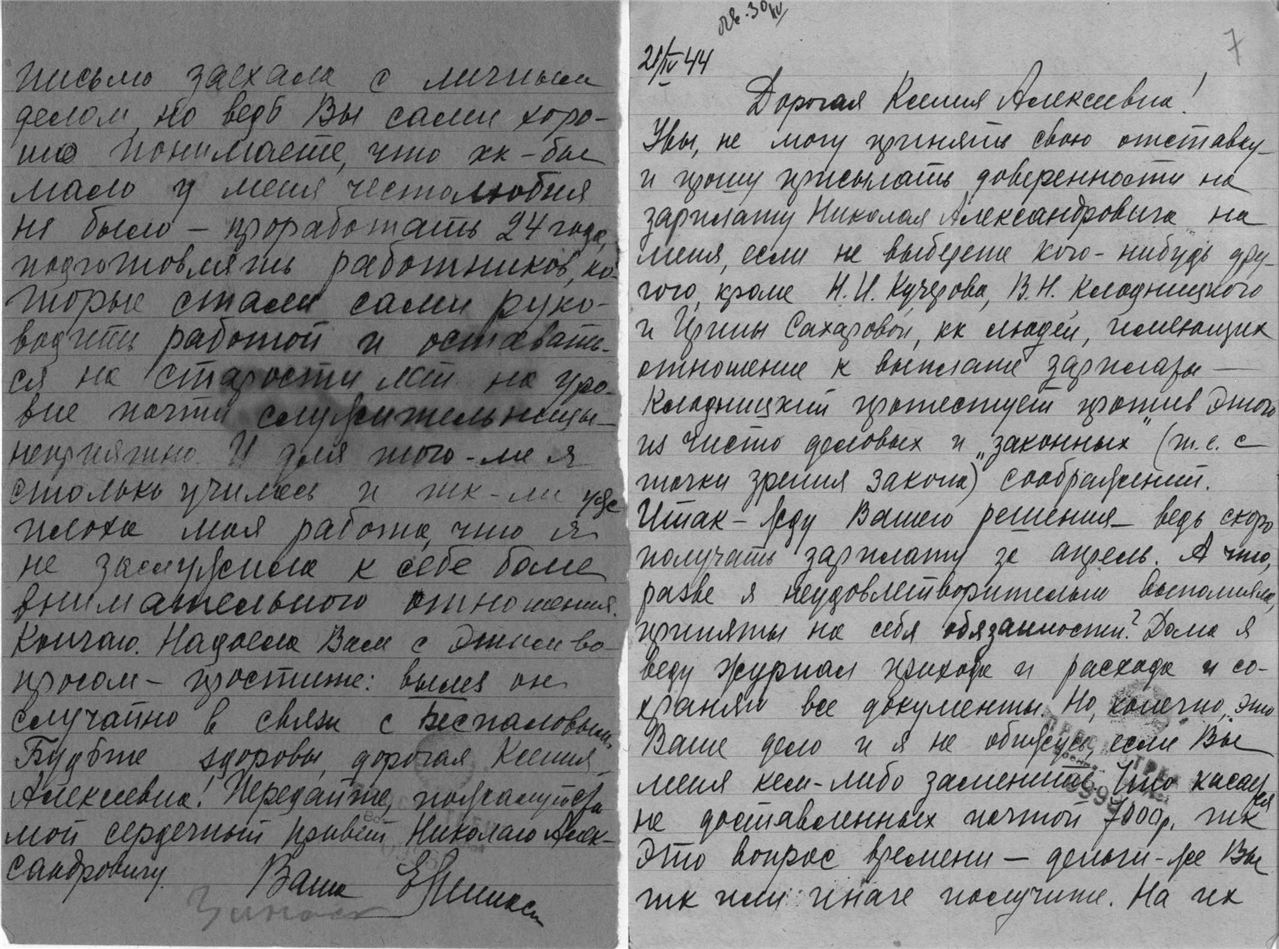 письмо заехала с личным
делом, но ведь Вы сами хоро-
шо понимаете, что кк-бы
мало у меня честолюбия
не было – проработать 24 года,
подготовлять работников, ко-
торые стали сами руко-
водить работой и оставать-
ся на старости лет на уро-
вне почти служительницы –
неприятно. И для того-ли я
столько училась и тк-ли уже
плоха моя работа, что я
не заслужила к себе более
внимательного отношения.
Кончаю. Надоела Вам с этим во-
просом – простите: вылез он
случайно в связи с Беспаловым.
Будьте здоровы, дорогая Ксения
Алексеевна! Передайте, пожалуйста
мой сердечный привет Николаю Алек-
сандровичу.
Ваша
30/IV
7
21/IV 44
Дорогая Ксения Алексеевна!
Увы, не могу принять свою отставку
и прошу присылать доверенности на
зарплату Николая Александровича на
меня, если не выберете кого-нибудь дру-
гого, кроме Н.И. Кучерова, В.Н. Кладницкого
и Ирины Сахаровой, кк людей, имеющих
отношение к выплате зарплаты –
Кладницкий протестует против этого
из чисто деловых и „законных" (т.е. с
точки зрения закона) соображений.
Итак – жду Вашего решения – ведь скоро
получать зарплату за апрель. А что,
разве я неудовлетворительно выполняла,
принятые на себя обязанности? Дома я
веду журнал прихода и расхода и со-
храняю все документы. Но, конечно, это
Ваше дело и я не обижусь, если Вы
меня кем-либо замените. Что касается
не доставленных почтой 7000р. тк
это вопрос времени – деньги-же Вы
тк или иначе получите. На их